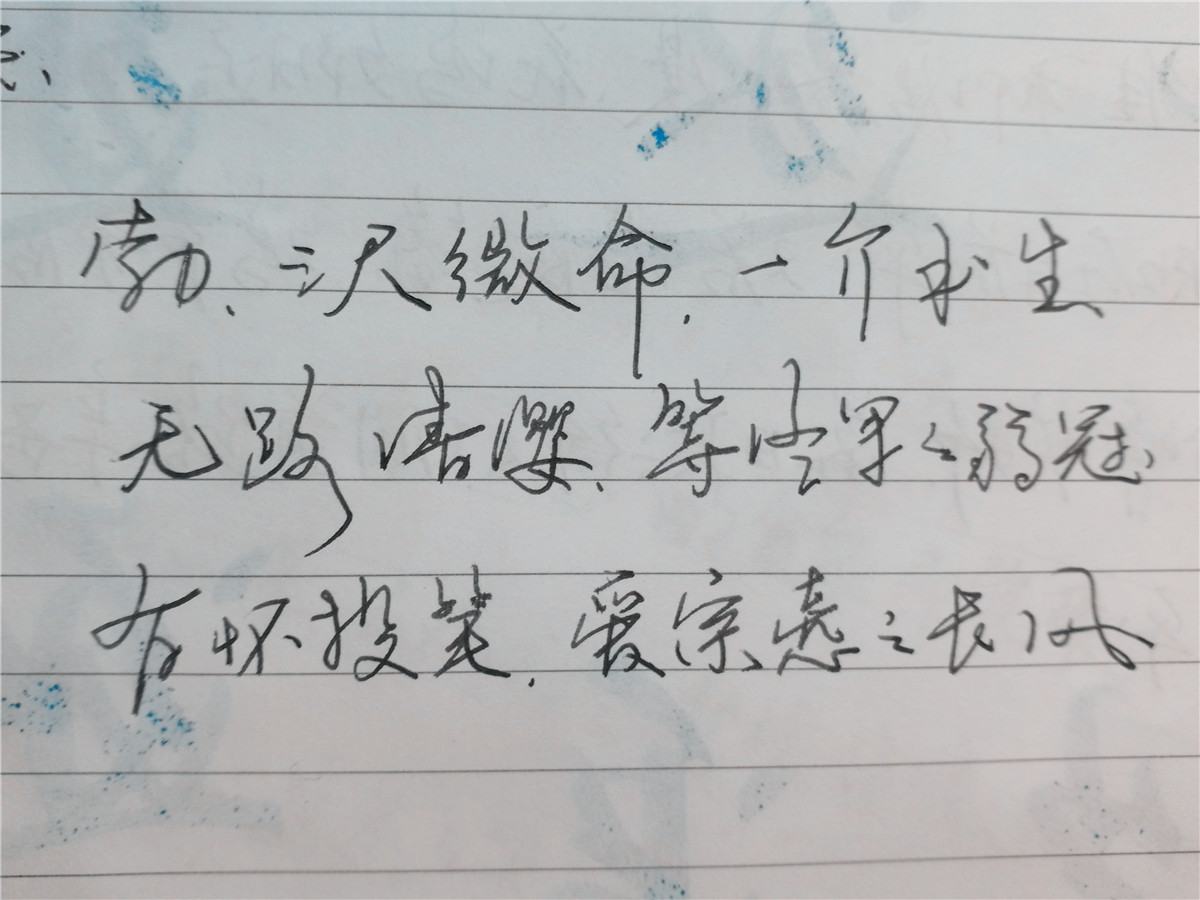 勃、三尺微命.一介书生
无路请缨、等终军之弱冠、
有怀投笔.爱宗悫之长风